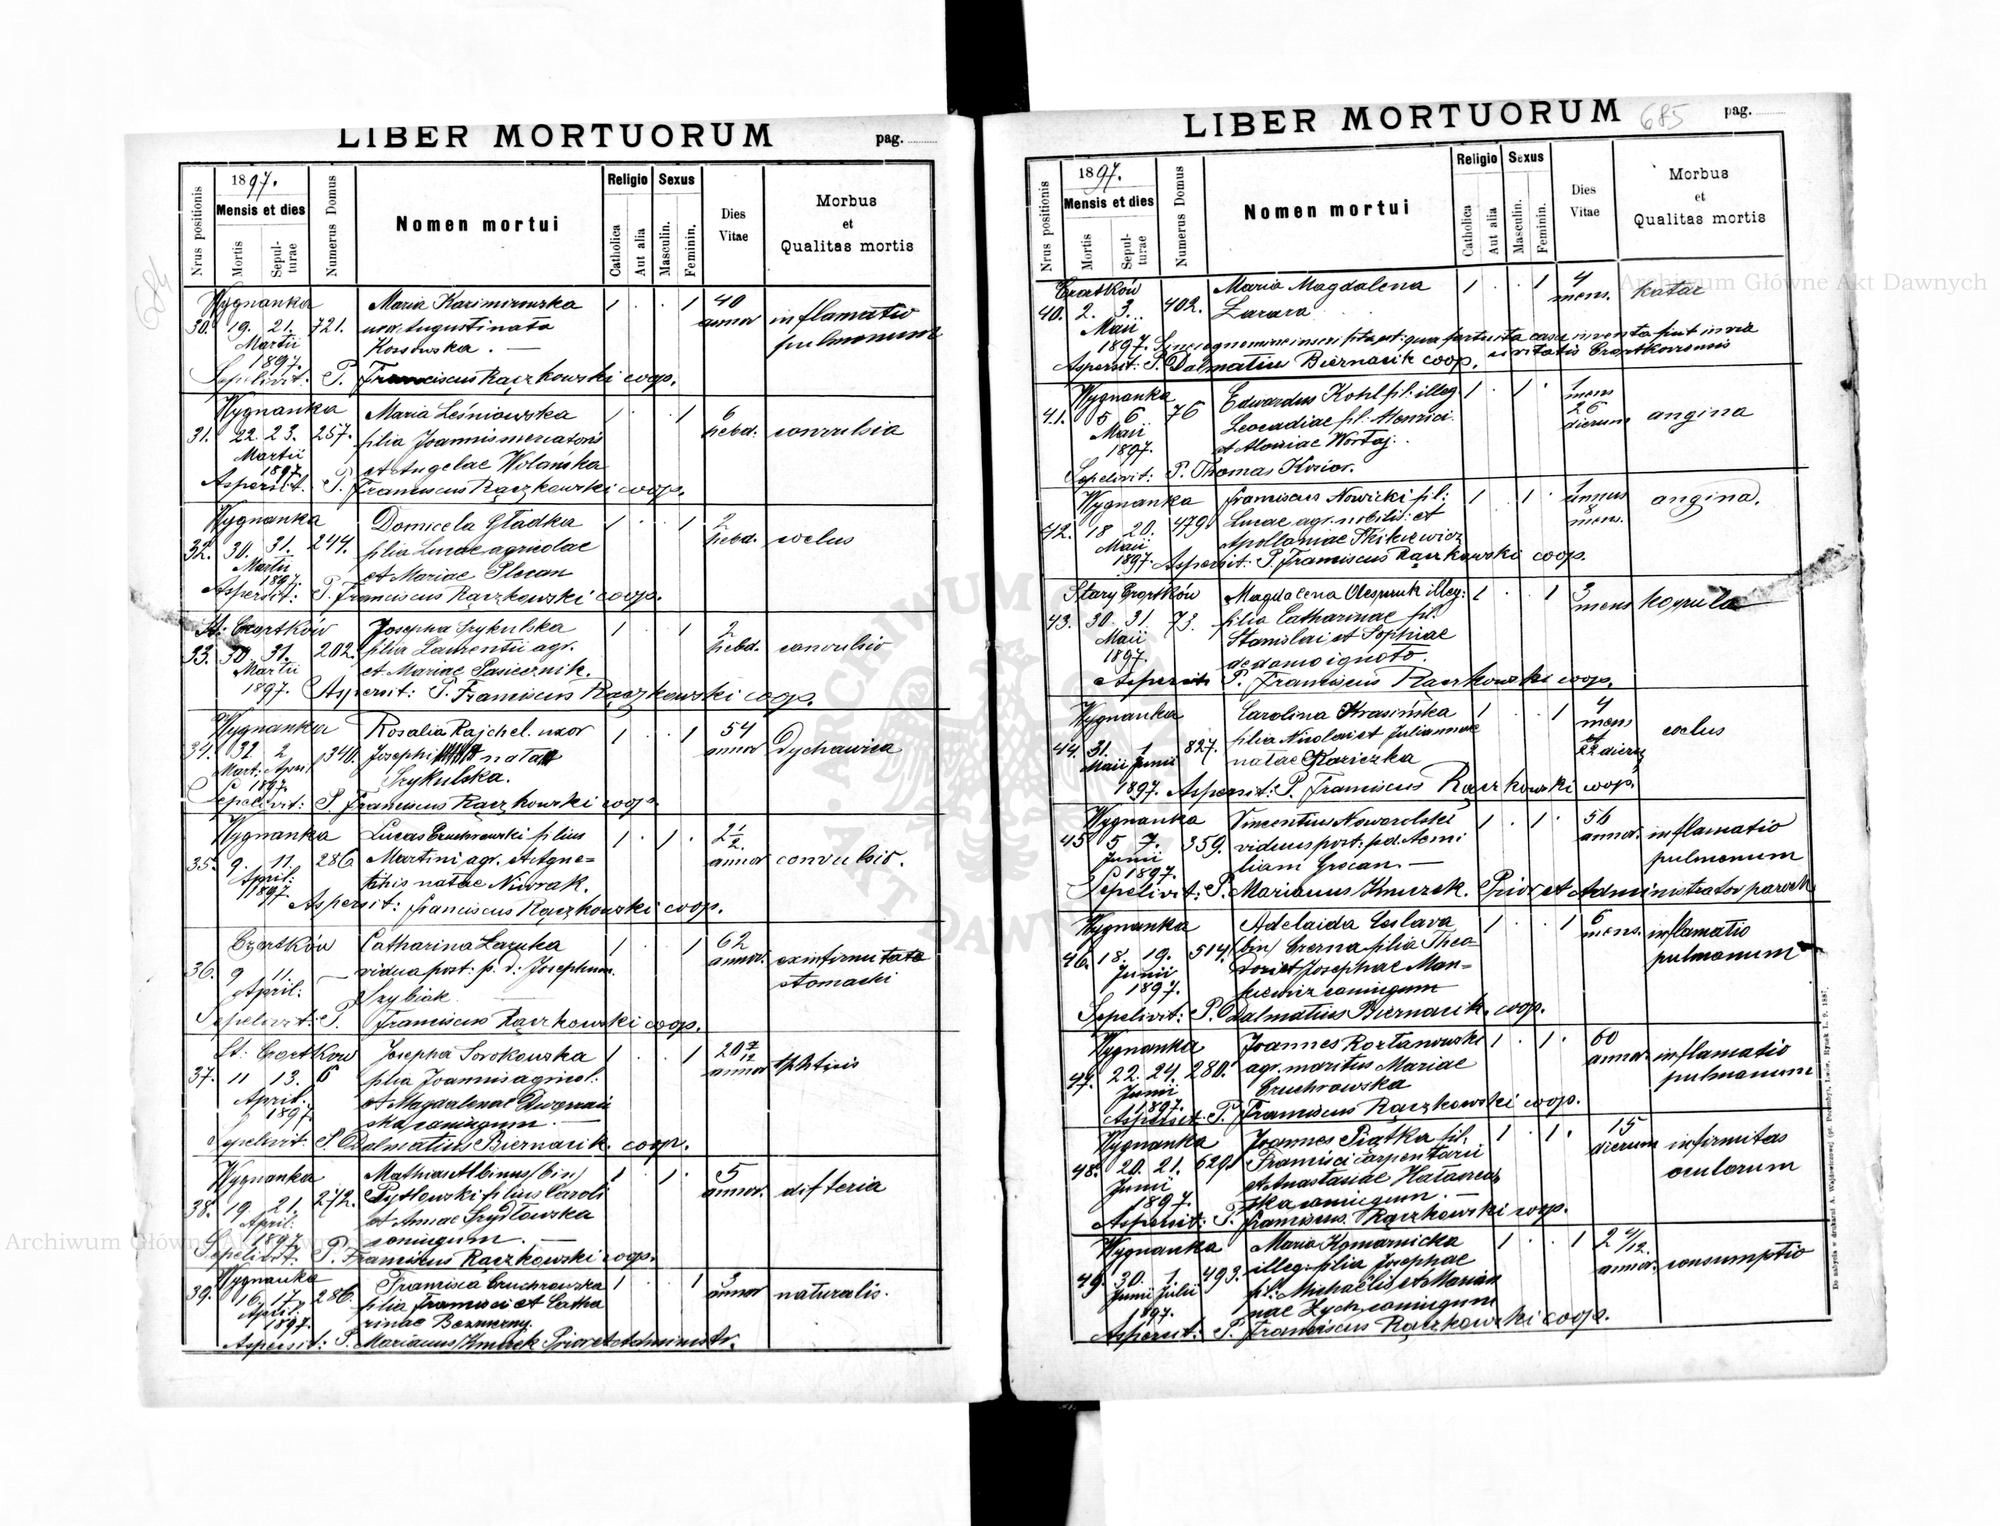 LIBER MORTUORUM pag.
684
Nrus positionis
1897.
Mensis et dies
Mortis
Sepulturae
Numerus Domus
Nomen mortui
Religio
Catholica
Aut alia
Sexus
Masculin.
Feminin.
Dies Vitae
Morbus
et
Qualitas mortis
Wygnanka Maria Kazimirowska 1 . . 1 40
30. 19. 21. 721. Augustinata annor inflamatio
Martii Kossowska. pulmonum
1897.
Sepelivit: P. Franciscus Rączkowski coop.
Wygnanka Maria Leśniowska 1 . . 1 6
31. 22. 23. 257. filia Joannis mercatoris hebd: convulsia
Martii et Angelae Wolańska
1897.
Aspersit. P. Franciscus Rączkowski coop.
Wygnanka Domicela Gładka 1 . . 1 2
32. 30. 31. 244. filia Lucae agricolae hebd. coclus
Martii et Mariae Plecan
1897.
Aspersit: P. Franciscus Rączkowski coop.
St: Czortków Josepha Szykulska 1 . . 1 2
33. 30. 31. 202. filia Laurentii agr. hebd. convulsio
Martii et Mariae Pasiecznik.
1897. Aspersit: P. Franciscus Rączkowski coop.
Wygnanka Rosalia Rajchel. uxor 1 . . 1 54
34. 31. 2 340. Josephi nata annor Dychawica
Mart: April Szykulska.
1897.
Sepelivit: P. Franciscus Rączkowski coop.
Wygnanka Lucas Cruchrowski filius 1 . 1 . 2 1/2
35. 9. 11. 286 Martini agr. et Agne= annor convulsio.
April: this natae Niwrak.
1897
Aspersit: Franciscus Rączkowski coop.
Czortków Catharina Lazuka 1 . . 1 62
36. 9 11. — vidua post: p. d. Josephum annor. ex infirmitate
April: Szybiak stomachi
Sepelivit: P. Franciscus Rączkowski coop.
St: Czortkow Josepha Sorokowska 1 . . 1 20 7/12
37. 11 13. 6 filia Joannis agricol. annor
April. et Magdalenae
1897. coniugum. —
Sepelivit. P. Dalmatius Biernacik. coop.
Wygnanka Mathias Albinus (bin) 1 . 1 . 5
38. 19. 21. 272. Pytlowski filius Caroli annor. difteria
April: et Annae Szydłowska
1897. coniugum. —
Sepelivit. P. Franciscus Rączkowski coop.
Wygnanka Francisca Cruchrowska 1 . . 1 3
39. 16. 17. 286. filia Francisci et Catha annor naturalis.
April. rinae
1897.
Aspersit: P. Marianus Kmiecik Prior et Administr.
LIBER MORTUORUM 685 pag.
Nrus positionis
1897.
Mensis et dies
Mortis
Sepulturae
Numerus Domus
Nomen mortui
Religio
Catholica
Aut alia
Sexus
Masculin.
Feminin.
Dies Vitae
Morbus
et
Qualitas mortis
Czortków Maria Magdalena 1 . . 1 4
40. 2. 3. 402. Zarara mens. katar
Maii
1897. casu inventa fuit in via
Aspersit: P. Dalmatius Biernacik coop. civitatis Czortkoviensis
Wygnanka Edwardus Kohl fil. illeg. 1 . 1 . 1 mens
41. 5 6 76 Leocadiae fil: Henrici 26 dierum angina
Maii et Aloisiae Wortaj.
1897.
Sepelivit: P. Thomas
Wygnanka Franciscus Nowicki fil: 1 . 1 . 1 annus
42. 18 20. 479. Lucae agr. nobilis: et mens. angina.
Maii Apollaniae
1897. Aspersit: P. Franciscus Rączkowski coop.
Stary Czortków Magdalena illeg: 1 . . 1 3
43. 30. 31. 73. filia Catharinae fil. mens
Maii Stanislai et Sophiae
1897. de domo ignoto.
Aspersit P. Franciscus Rączkowski coop.
Wygnanka Carolina Krasińska 1 . . 1 4 mens
44. 31. 1 827. filia Nicolai et Juliannae et 22 dieru coclus
Maii Junii natae
1897. Aspersit: P. Franciscus Rączkowski coop.
Wygnanka Vincentius Noworolski 1 . 1 . 56
45 5 7. 359. viduus post: p.d. Aemi annor. inflamatio
Junii liam Grocan. — pulmonum
1897.
Sepelivit: P. Marianus Kmiecik. Prior et Administrator paroch
Wygnanka Adelaida Ceslava 1 . . 1 6
46. 18. 19. 514. (bin) Czerna filia Theo= mens. inflamatio
Junii dori et Josephae Man= pulmonum
1897. coniugum
Sepelivit: P. Dalmatius Biernacik. coop.
Wygnanka Joannes Rozłanowski 1 . 1 . 60
47. 22. 24. 280. agr. maritus Mariae annor. inflamatio
Junii Cruchrowska pulmonum
1897.
Aspersit: P. Franciscus Rączkowski coop.
Wygnanka Joannes Piątka fil. 1 . 1 . 15
48. 20. 21. 629. Francisci carpentarii dierum infirmitas
Junii et Anastasiae oculorum
1897. coniugum. —
Aspersit: P. Franciscus Rączkowski coop.
Wygnanka Maria Komarnicka 1 . . 1 2 4/12
49. 30. 1. 493. illeg: filia Josephae annor. consumptio
Junii Julii fil: Michaelis et Marian
1897. nae Zych coniugum
Aspersit: P. Franciscus Rączkowski coop.
Archiwum Główne Akt Dawnych
Archiwum Główne Akt Dawnych
ARCHIWUM
AKT DAWNYCH